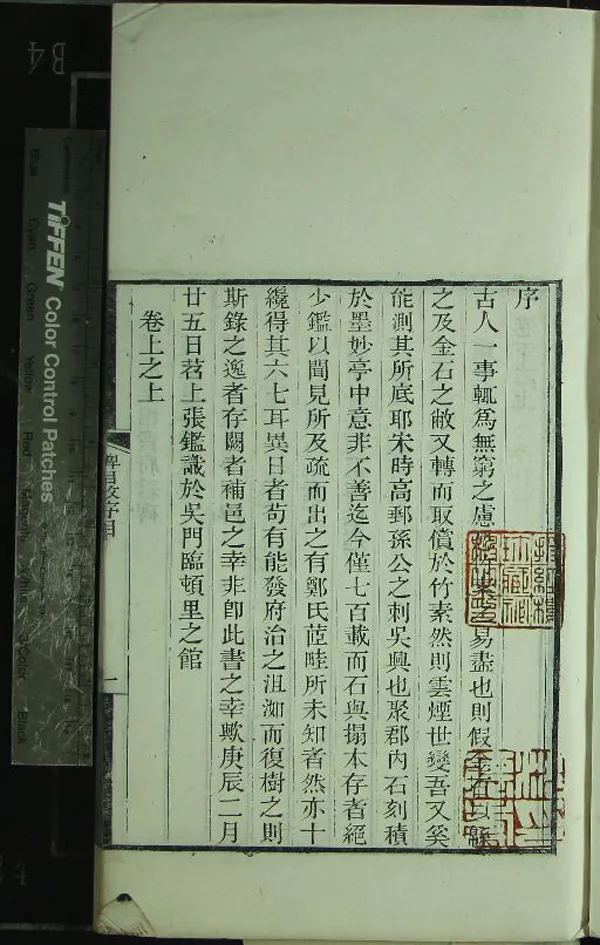 序
古人一事輒爲無窮之慮 易盡也則假金石以緜
之及金石之敝又轉而取償於竹素然則雲煙世變吾又奚
能測其所底耶宋時高郵孫公之刺吳興也聚郡內石刻積
於墨妙亭中意非不善迄今僅七百載而石與搨本存者絕
少鑑以聞見所及疏而出之有鄭氏芷畦所未知者然亦十
纔得其六七耳異日者苟有能發府治之沮洳而復樹之則
斯錄之逸者存闕者補邑之幸非卽此書之幸歟庚辰二月
廿五日苕上張鑑識於吳門臨頓里之館
卷上之上
碑目攷序目
一
B4
TIFFEN Color Control Patches
Blue
Cyan
Green
Yellow
Red
Magenta
White
3/Color
Black